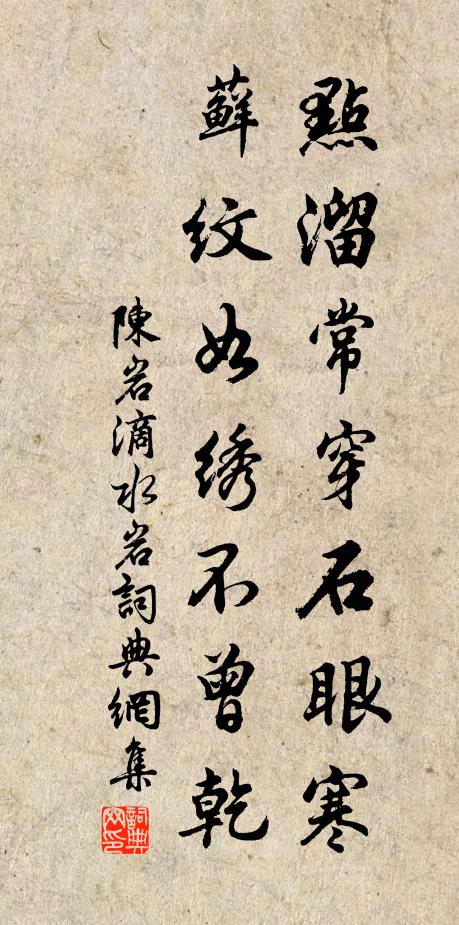 點溜常穿石眼寒
蘚紋如綉不曾乾
陳岩滴水岩詞典網集
詞典网印